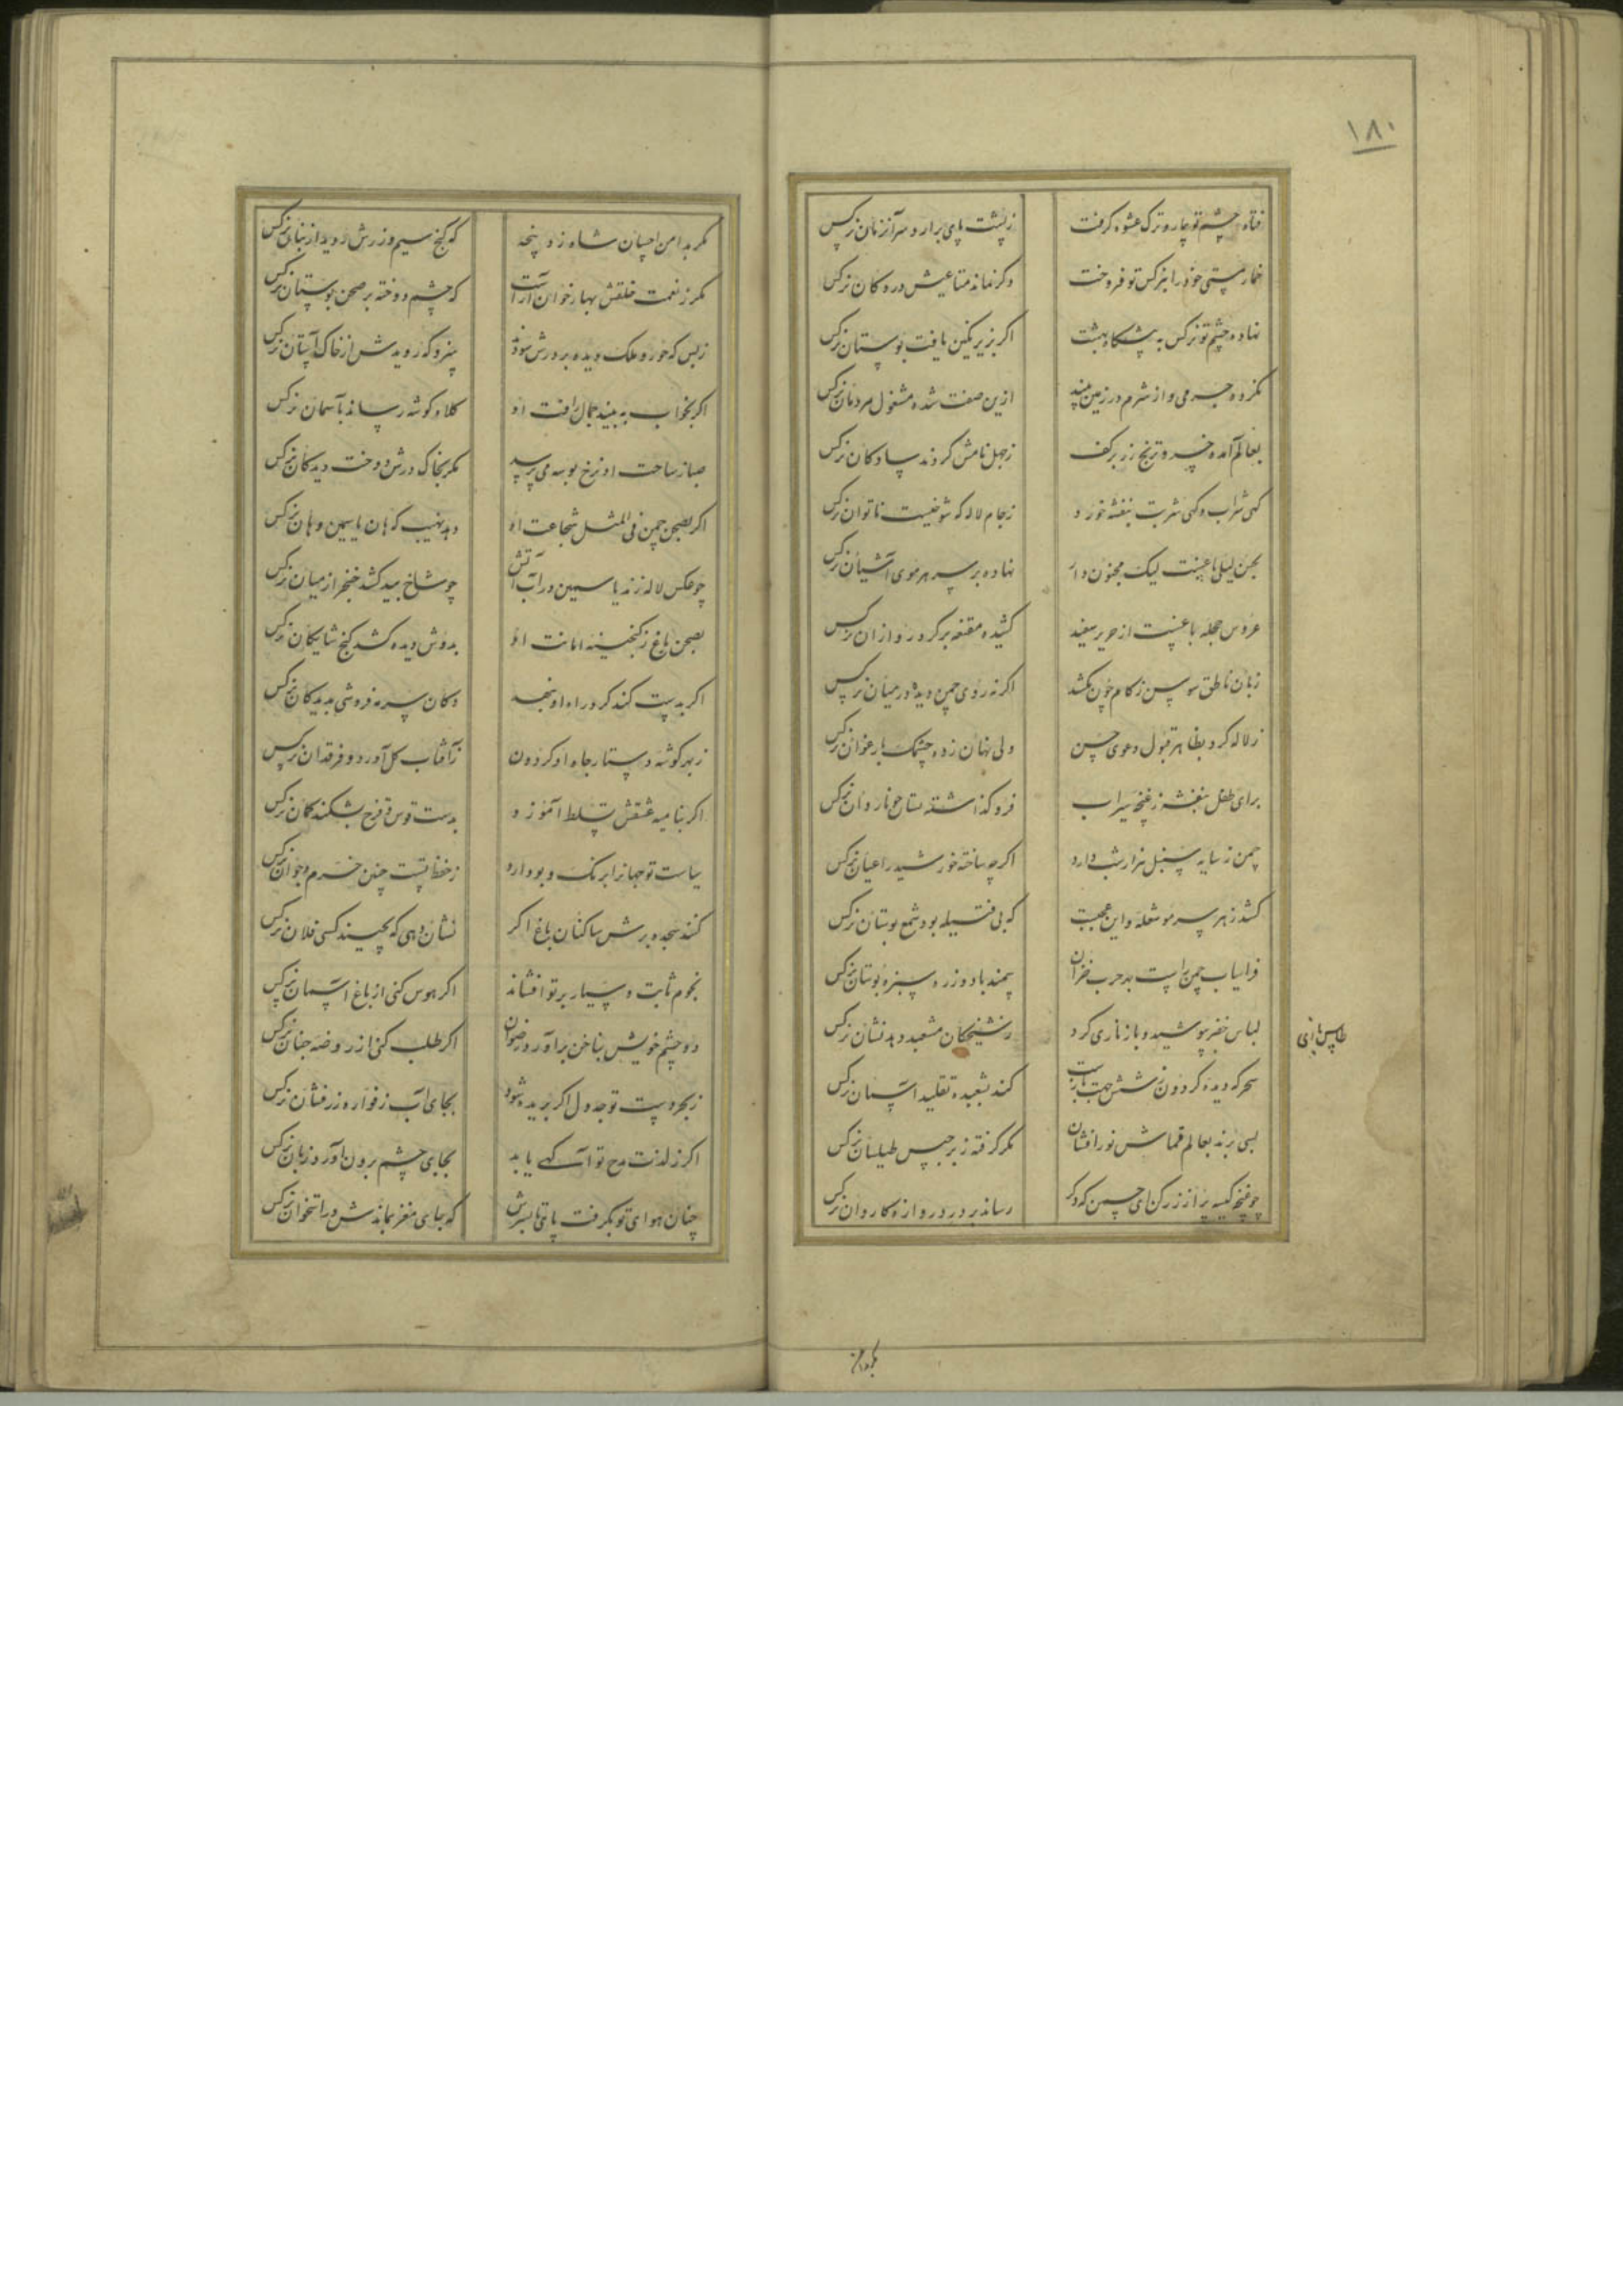 ۱۸۰
فتاد چشم تو چار و ترک عشوه گرفت ز پشت پای برآرد سر آنزمان نرکس
خمار مستی خود را بنرکس تو فروخت دکر نماند متاعیش در دکان نرکس
نهاده چشم تو نرکس به پیشکاه بهشت اکر بزیر نکین یافت بوستان نرکس
نکرده جرمی و از شرم در زمین بیند ازین صفت شده مشغول مردمان نرکس
بعالم آمده خسرو ترنج زر بر کف ز جهل نامش کردند سادکان نرکس
کهی شراب و کهی شربت بنفشه خورد ز جام لاله که شوخیست ناتوان نرکس
بحسن لیلی باغیست لیک مجنون وار نهاده بر سر هر موی آشیان نرکس
عروس حجله باغیست از حریر سفید کشیده مقنعه بر کرد رو از ان نرکس
زبان ناطق سوسن ز کام چون نکشد اکر نه روی چمن دیده در میان نرکس
ز لاله کرد بظاهر قبول دعوی حسن ولی نهان زده چشمک بارغوان نرکس
برای طفل بنفشه ز غنچه سیراب فرو کذاشته نارون نرکس
چمن ز سایه سنبل هزار شب دارد اکر چه ساخته خورشید را عیان نرکس
کشد ز هر سر مو شعله و این عجبست که بی فتیله بود شمع بوستان نرکس
فراسیاب چمن راست بد حرب خزان سمند باد و زره سبزه بوستان نرکس
لباس خضر پوشید و باز ناری کرد مشعبد دهد نشان نرکس
طاس بازی
سحر که دیده کردون ز شش جهت باز است کند بشعبده تقلید آسمان نرکس
بسی برند بعالم قماش نور افشان مکر کرفته ز برجیس طیلسان نرکس
چو غنچه کیسه پر از زر کن ای چمن که دکر رساند بر در دروازه کاروان نرکس
مکر بدامن احسان شاه زد پنجه که کنج سیم و زرش روید از بنان نرکس
مکر ز نعمت خلقش بهار خوان آراست که چشم دوخته بر صحن بوستان نرکس
ز بس که حور و ملک دیده بر درش سودند سزد که رویدش از خاک آستان نرکس
اکر بخواب به بیند جمال رافت او کلاه کوشه رساند بآسمان نرکس
صبا ز ساحت او نرخ بوسه می پرسید مکر بخاک درش دوخت دیدکان نرکس
اکر بصحن چمن فی المثل شجاعت او دهد نهیب که هان یاسمین و هان نرکس
چو عکس لاله زند یاسمین در آب آتش چو شاخ بید کشد خنجر از میان نرکس
بصحن باغ ز کنجینه امانت او بدوش دیده کشد کنج شایکان نرکس
اکر بدست کند کرد راه او بنهد دکان سرمه فروشی بدیدکان نرکس
ز بهر کوشه دستار جاه او کردون ز آفتاب کل آورد و فرقدان نرکس
اکر بنامیه عشقش تسلط آموزد بدست قوس قزح بشکند کمان نرکس
سیاست تو جهانرا برنک و بو دارد ز حفظ تست چنین خرم و جوان نرکس
کنند سجده برش ساکنان باغ اکر نشان دهی که بچیند کسی فلان نرکس
نجوم ثابت و سیار بر تو افشاند اکر هوس کنی از باغ آسمان نرکس
دو چشم خویش بناخن برآورد رضوان اکر طلب کنی از روضه جنان نرکس
ز بحر دست تو جدول اکر بریده شود بجای آب ز فواره زر فشان نرکس
اکر ز لذت مدح تو آکهی یابد بجای چشم برون آورد زبان نرکس
چنان هوای تو بکرفت پای تا بسرش که جای مغز بماندش در استخوان نرکس
مکر بدامن